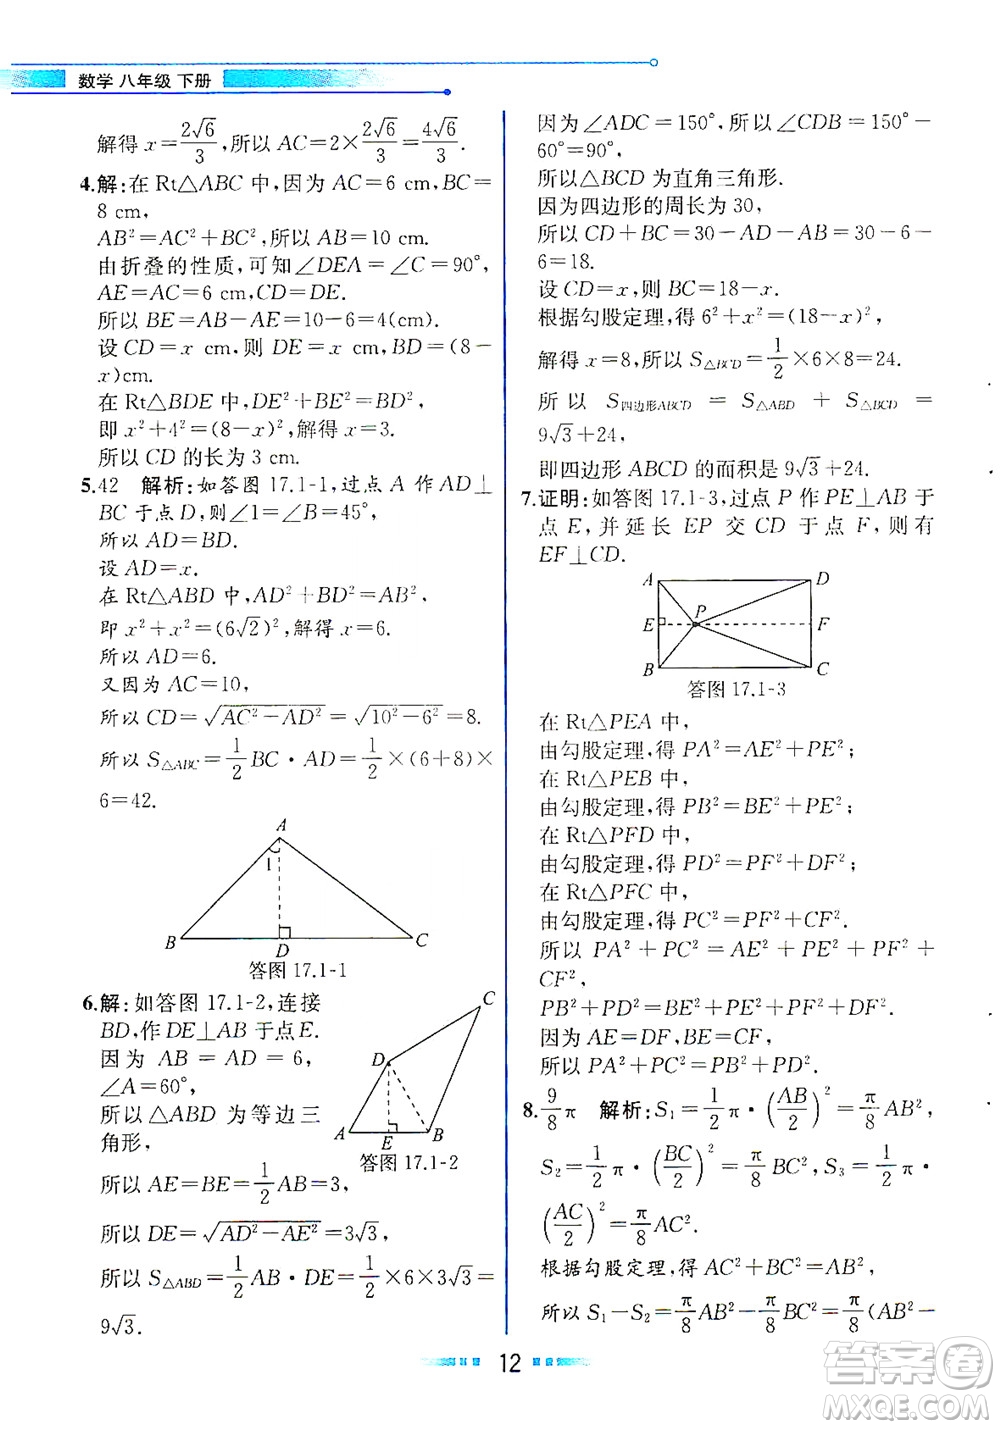 数学 八年级 下册
解得 x=2√6/3,所以 AC=2×2√6/3=4√6/3.
4.解:在 Rt△ABC 中,因为 AC=6 cm,BC=
8 cm,
AB²=AC²+BC²,所以 AB=10 cm.
由折叠的性质,可知∠DEA=∠C=90°,
AE=AC=6 cm,CD=DE.
所以 BE=AB-AE=10-6=4(cm).
设 CD=x cm,则 DE=x cm,BD=(8-
x)cm.
在 Rt△BDE 中,DE²+BE²=BD²,
即 x²+4²=(8-x)²,解得 x=3.
所以 CD 的长为 3 cm.
5.42 解析:如答图 17.1-1,过点 A 作 AD⊥
BC 于点 D,则∠1=∠B=45°,
所以 AD=BD.
设 AD=x.
在 Rt△ABD 中,AD²+BD²=AB²,
即 x²+x²=(6√2)²,解得 x=6.
所以 AD=6.
又因为 AC=10,
所以 CD=√(AC²-AD²)=√(10²-6²)=8.
所以 S△ABC=1/2 BC·AD=1/2×(6+8)×
6=42.
A
1
B
D
C
答图 17.1-1
6.解:如答图 17.1-2,连接
BD,作 DE⊥AB 于点 E.
因为 AB = AD = 6,
∠A=60°,
所以 △ABD 为等边三
角形,
C
D
A
E
B
答图 17.1-2
所以 AE=BE=1/2 AB=3,
所以 DE=√(AD²-AE²)=3√3,
所以 S△ABD=1/2 AB·DE=1/2×6×3√3=
9√3.
因为∠ADC=150°,所以∠CDB=150°-
60°=90°,
所以△BCD 为直角三角形.
因为四边形的周长为 30,
所以 CD+BC=30-AD-AB=30-6-
6=18.
设 CD=x,则 BC=18-x.
根据勾股定理,得 6²+x²=(18-x)²,
解得 x=8,所以 S△BCD=1/2×6×8=24.
所以 S四边形ABCD = S△ABD + S△BCD =
9√3+24,
即四边形 ABCD 的面积是 9√3+24.
7.证明:如答图 17.1-3,过点 P 作 PE⊥AB 于
点 E,并延长 EP 交 CD 于点 F,则有
EF⊥CD.
A
D
P
E
F
B
C
答图 17.1-3
在 Rt△PEA 中,
由勾股定理,得 PA²=AE²+PE²;
在 Rt△PEB 中,
由勾股定理,得 PB²=BE²+PE²;
在 Rt△PFD 中,
由勾股定理,得 PD²=PF²+DF²;
在 Rt△PFC 中,
由勾股定理,得 PC²=PF²+CF².
所以 PA²+PC²=AE²+PE²+PF²+
CF²,
PB²+PD²=BE²+PE²+PF²+DF².
因为 AE=DF,BE=CF,
所以 PA²+PC²=PB²+PD².
8.9/8 π 解析:S₁=1/2 π·(AB/2)²=π/8 AB²,
S₂=1/2 π·(BC/2)²=π/8 BC²,S₃=1/2 π·
(AC/2)²=π/8 AC².
根据勾股定理,得 AC²+BC²=AB²,
所以 S₁-S₂=π/8 AB²-π/8 BC²=π/8(AB²-
12
答案圈
MXQE.COM